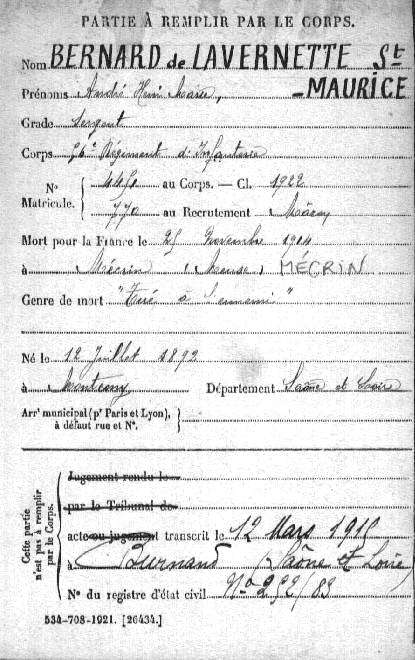 PARTIE À REMPLIR PAR LE CORPS.
Nom BERNARD de LAVERNETTE St
- MAURICE
Prénoms André Henri Marie,
Grade Sergent
Corps 56e Régiment d'Infanterie
N° Matricule. 4450 au Corps. — Cl. 1922
770 au Recrutement Mâcon
Mort pour la France le 25 Novembre 1914
à Mécrin (Meuse) MÉCRIN
Genre de mort "Tué à l'ennemi"
Né le 12 Juillet 1892
à Département Saône et Loire
Arrt municipal (pr Paris et Lyon),
à défaut rue et N°.
Cette partie n'est pas à remplir par le Corps.
Jugement rendu le
par le Tribunal de
acte ou jugement transcrit le 12 Mars 1915
à Burnand (Saône et Loire)
N° du registre d'état civil N° 292/83
534-708-1921. [26434.]